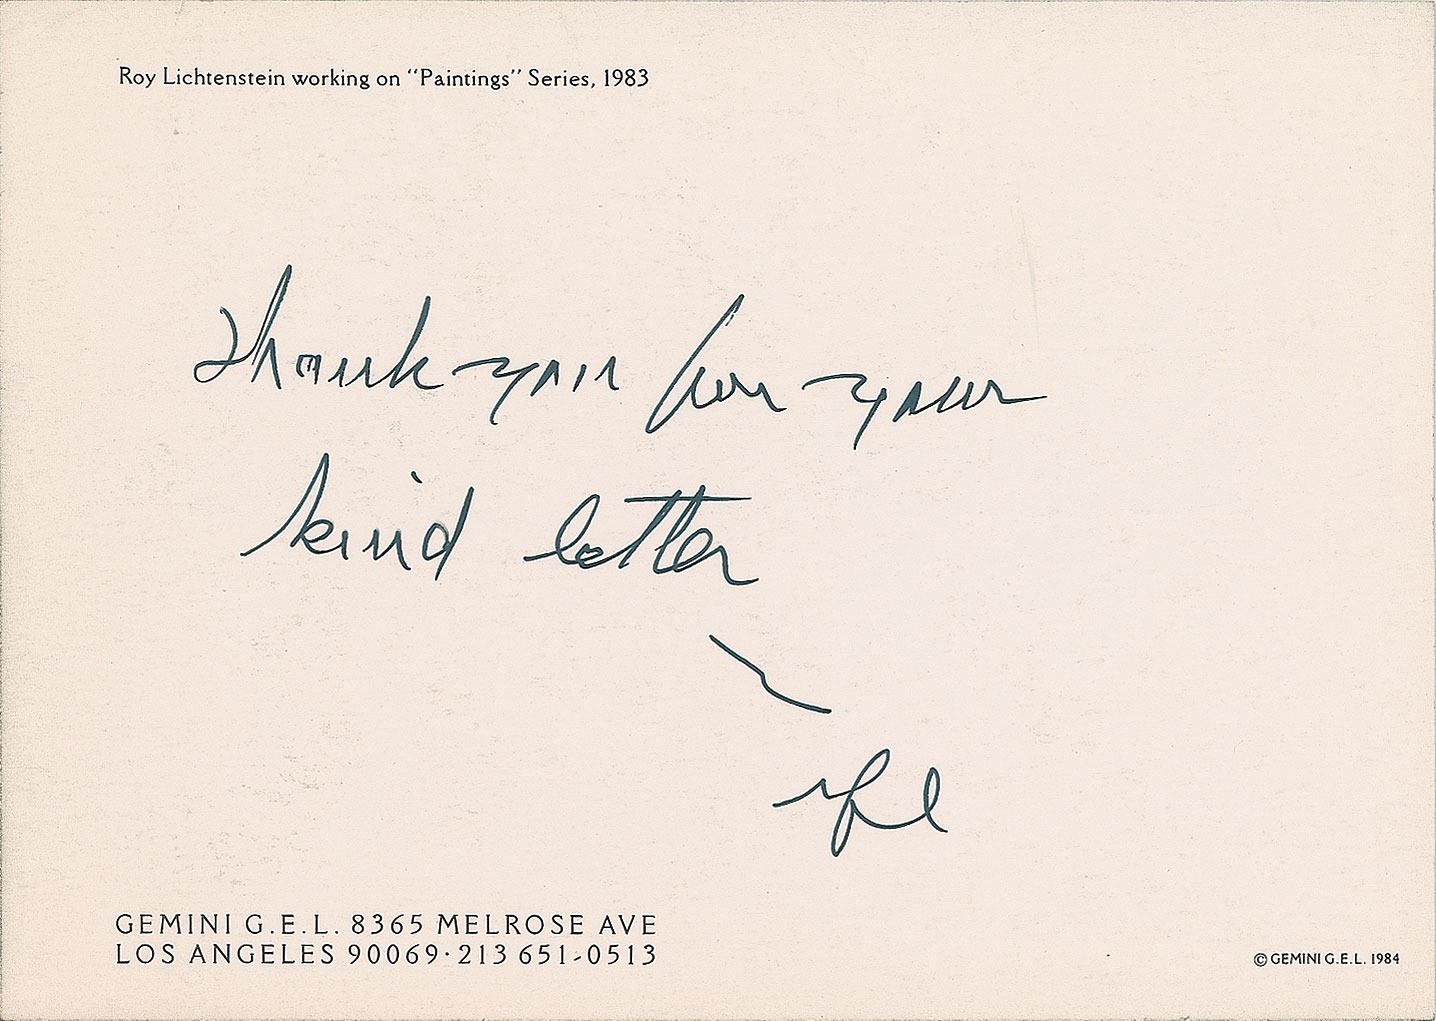 Roy Lichtenstein working on "Paintings" Series, 1983
Thank you for your
kind letter
rfl
GEMINI G.E.L. 8365 MELROSE AVE
LOS ANGELES 90069·213 651-0513
© GEMINI G.E.L. 1984